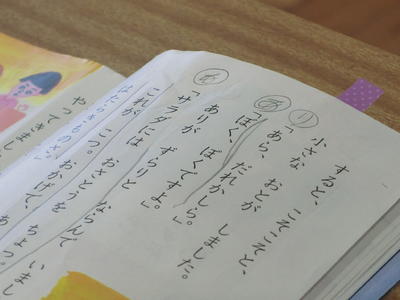 すると、こそこそと、
小さな おとが しました。
り
「あら、だれかしら。」
「ぼく、ぼくですよ。」
ありが ずらりと ならんで いまし
「サラダには おさとうを ちょっ
これが こつ。おかげで、あ
はたらきものさ。」
やってきまし